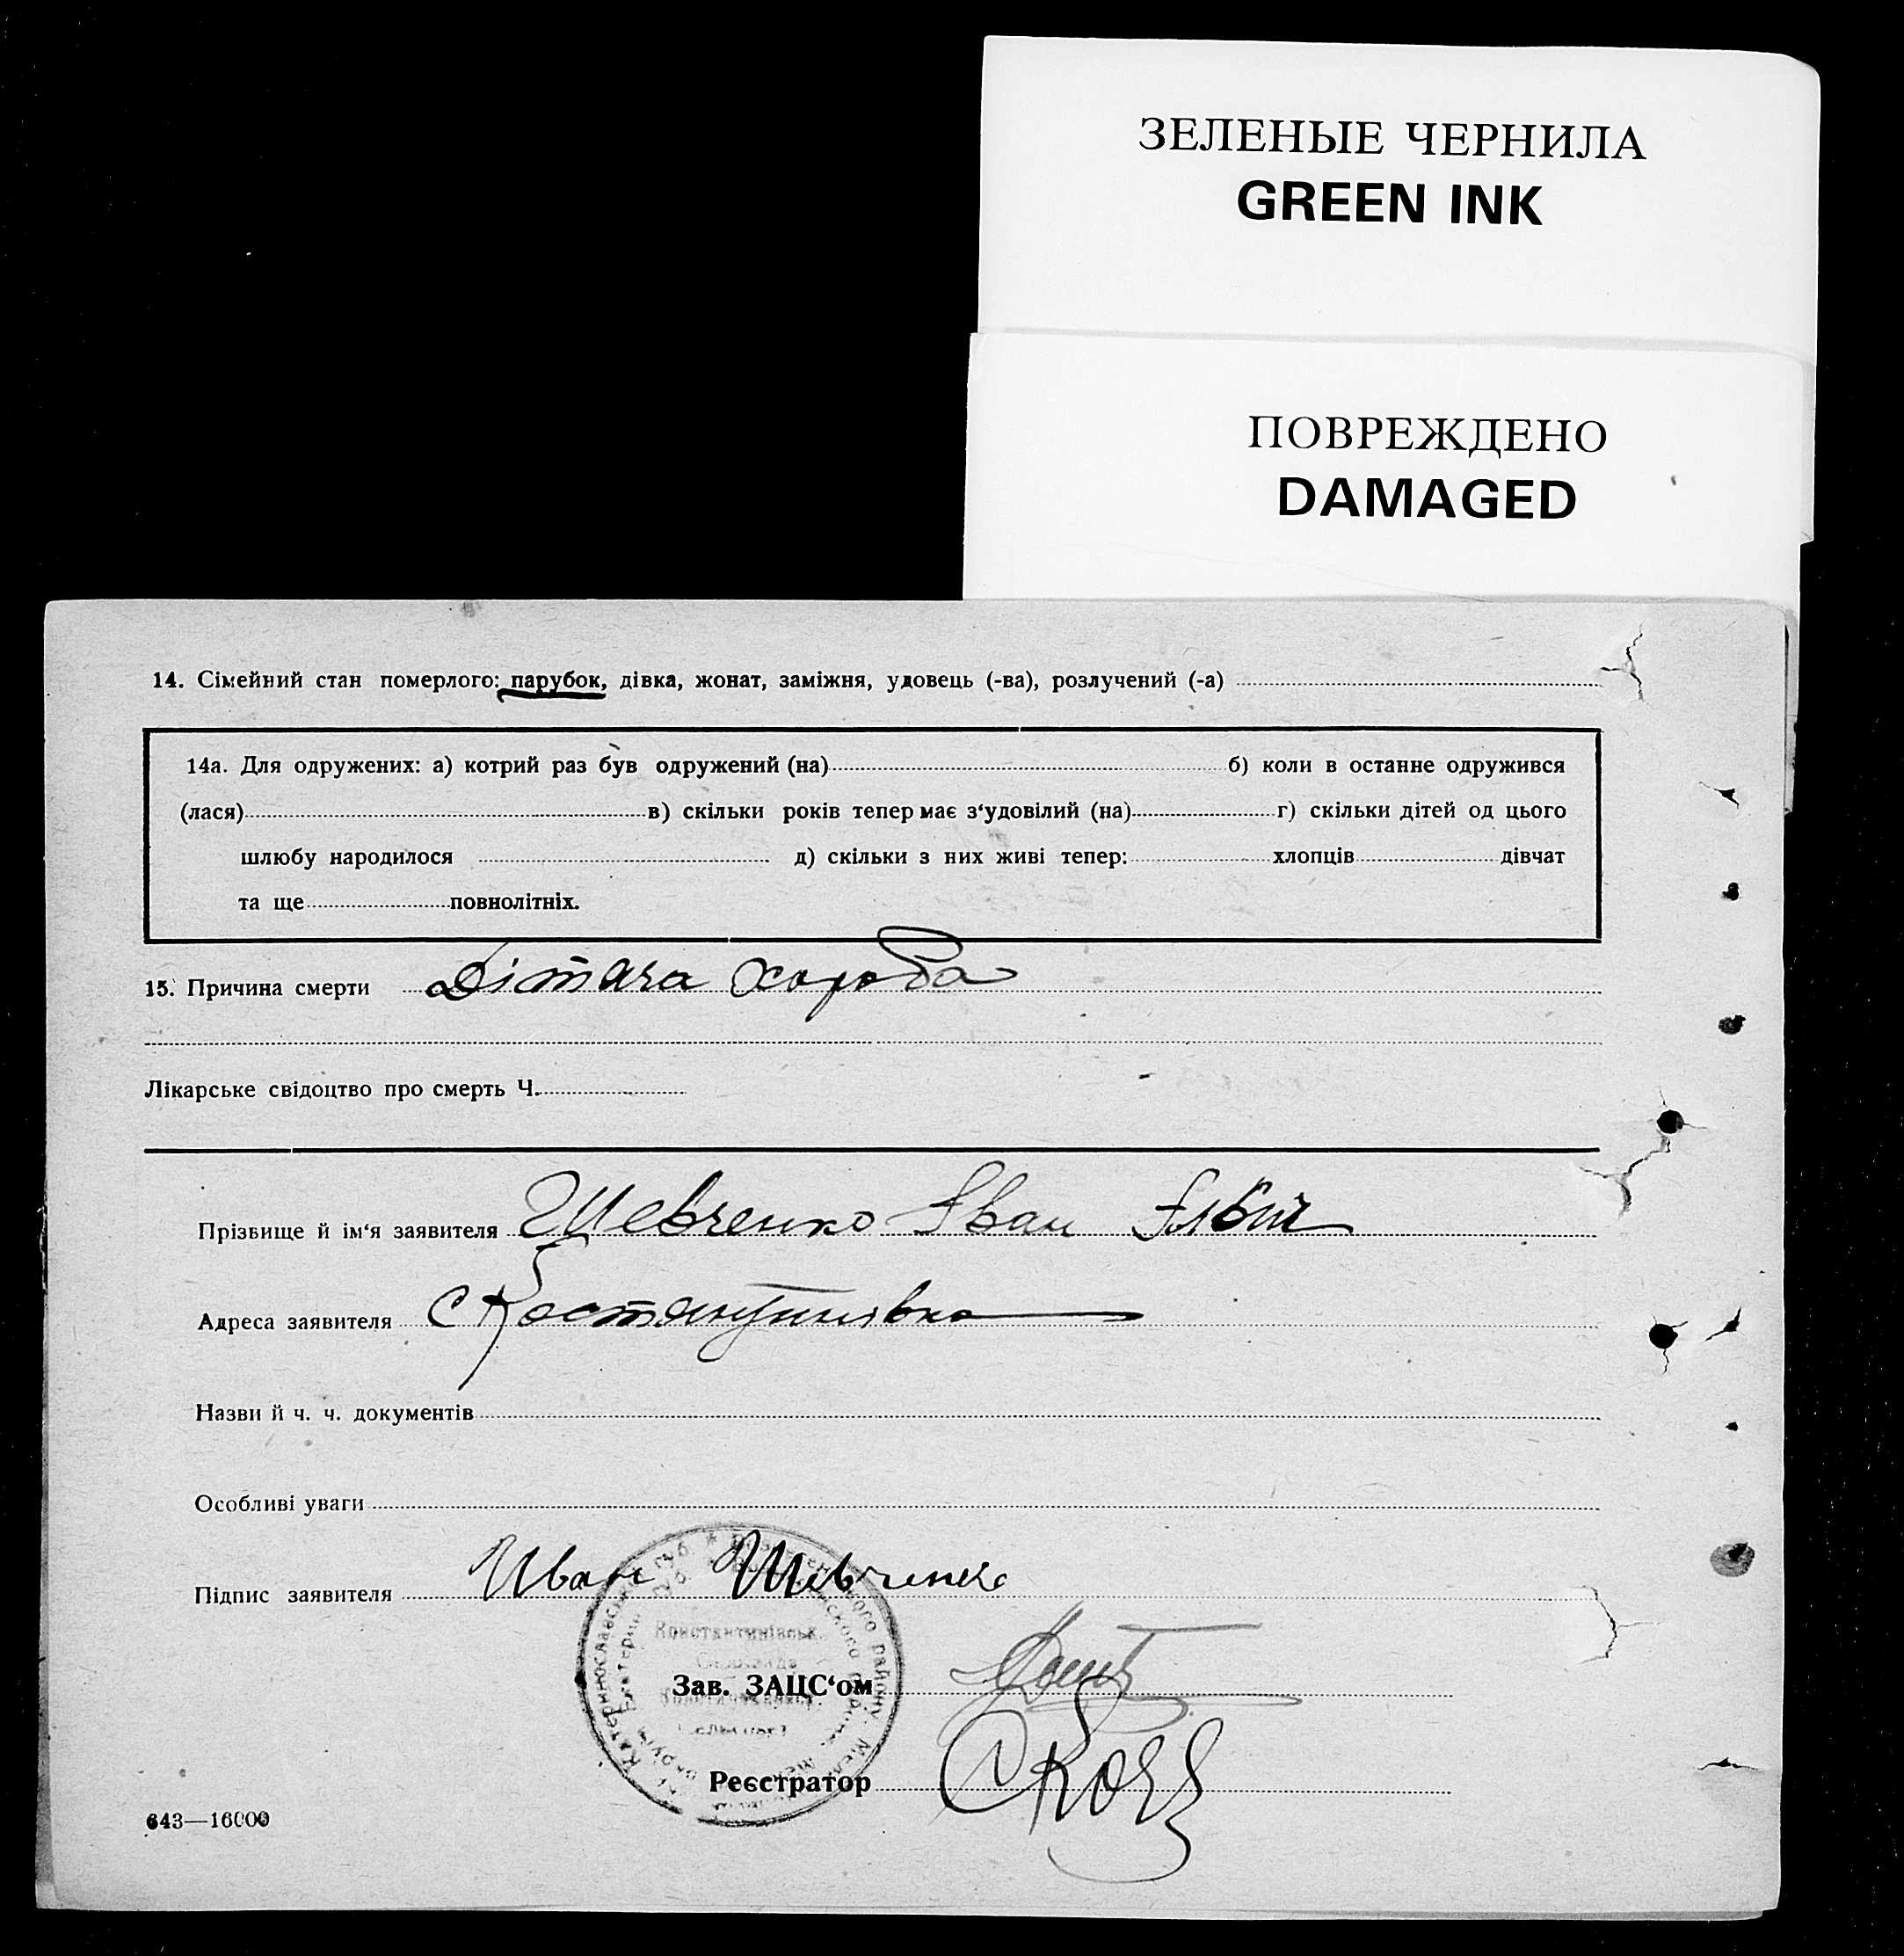 ЗЕЛЕНЫЕ ЧЕРНИЛА
GREEN INK
ПОВРЕЖДЕНО
DAMAGED
14. Сімейний стан померлого: парубок, дівка, жонат, заміжня, удовець (-ва), розлучений (-а)
14а. Для одружених: а) котрий раз був одружений (на) б) коли в останне одружився
(лася) в) скільки років тепер має з‘удовілий (на) г) скільки дітей од цього
шлюбу народилося д) скільки з них живі тепер: хлопців дівчат
та ще повнолітніх.
15. Причина смерти Дітяча хороба
Лікарське свідоцтво про смерть Ч.
Прізвище й ім‘я заявителя Шевченко Іван Ілвич
Адреса заявителя С Костянтинівка
Назви й ч. ч. документів
Особливі уваги
Підпис заявителя Иван Шевченко
Катеринославськ губ. району
Константинівськ.
Зав. ЗАЦС‘ом
Реєстратор
643—16000